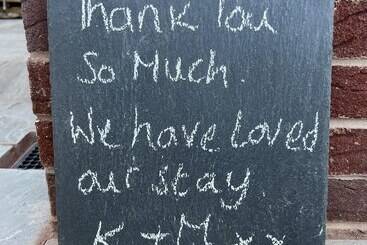 Thank You
So Much.
We have loved
our stay
K + M x x